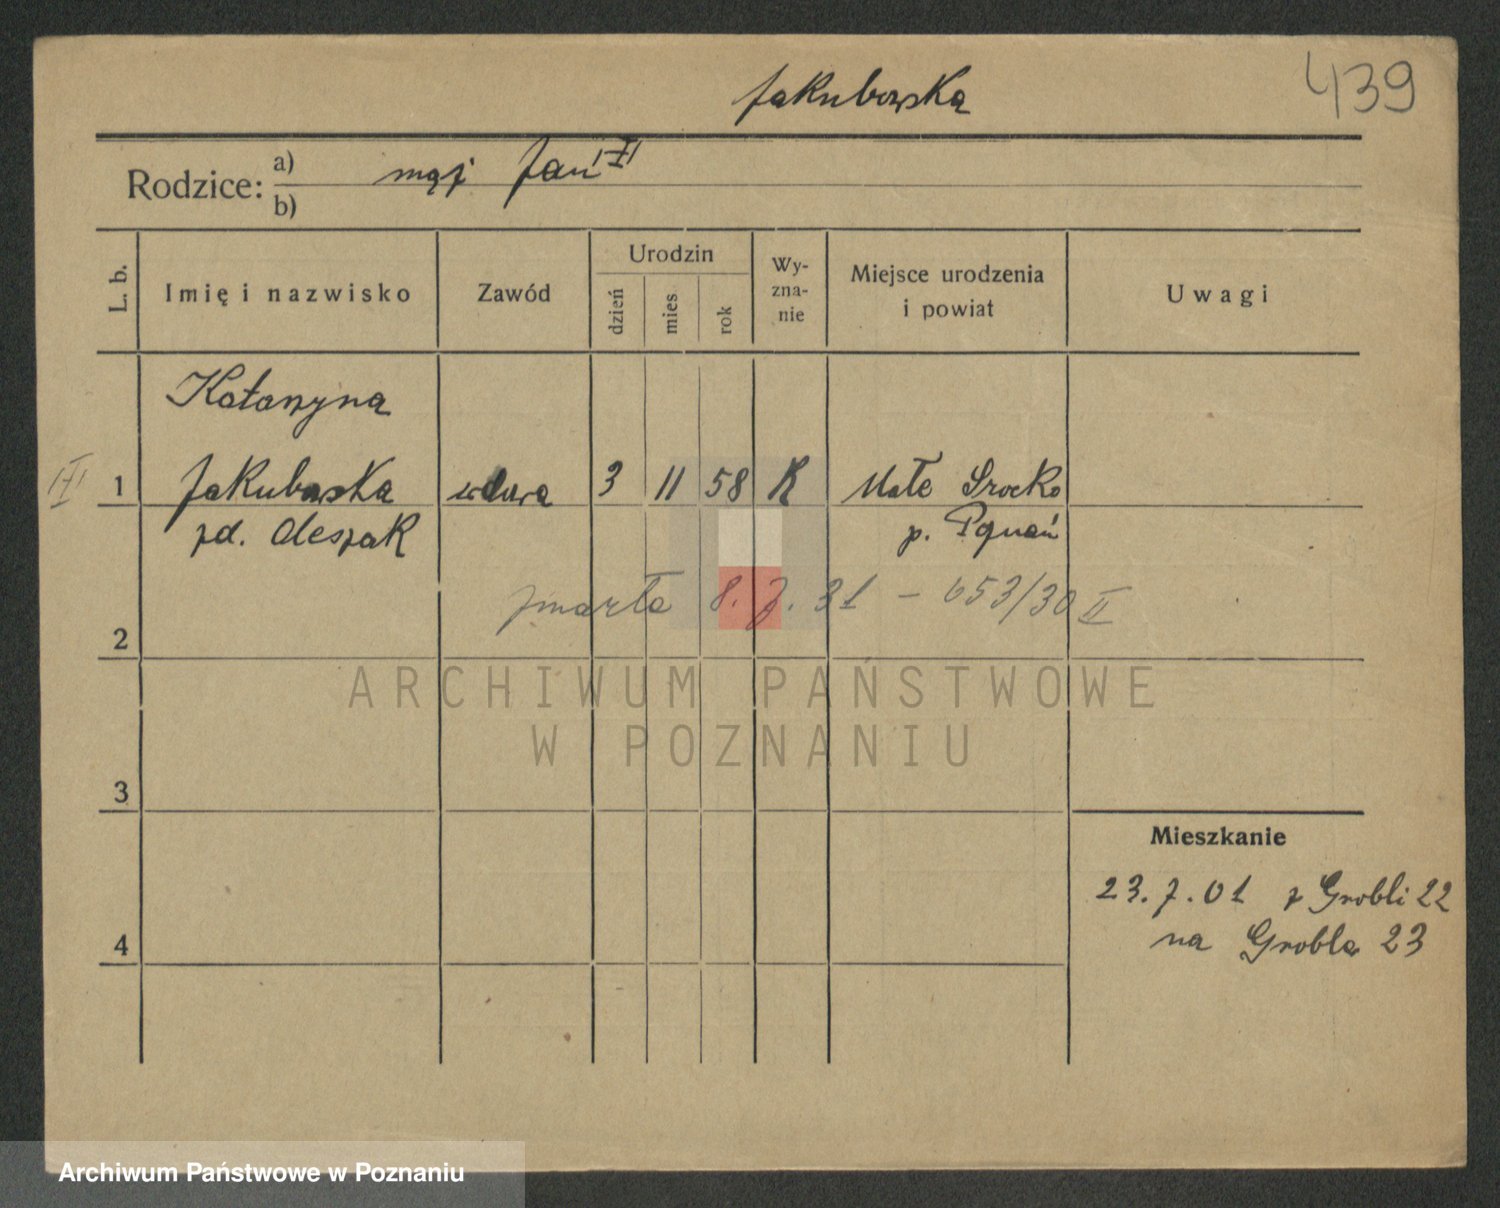 439
Jakubowska
Rodzice: a) mąż Jan
b)
L. b.
Imię i nazwisko
Zawód
Urodzin
dzień
mies
rok
Wy-
zna-
nie
Miejsce urodzenia
i powiat
Uwagi
Katarzyna
1 Jakubowska wdowa 3 11 58 K Małe Srocko
zd. Oleszak p. Poznań
zmarła 8.7.31 – 653/30 II
2
3
4
Mieszkanie
23.7.01 z Grobli 22
na Grobla 23
ARCHIWUM PAŃSTWOWE
W POZNANIU
Archiwum Państwowe w Poznaniu